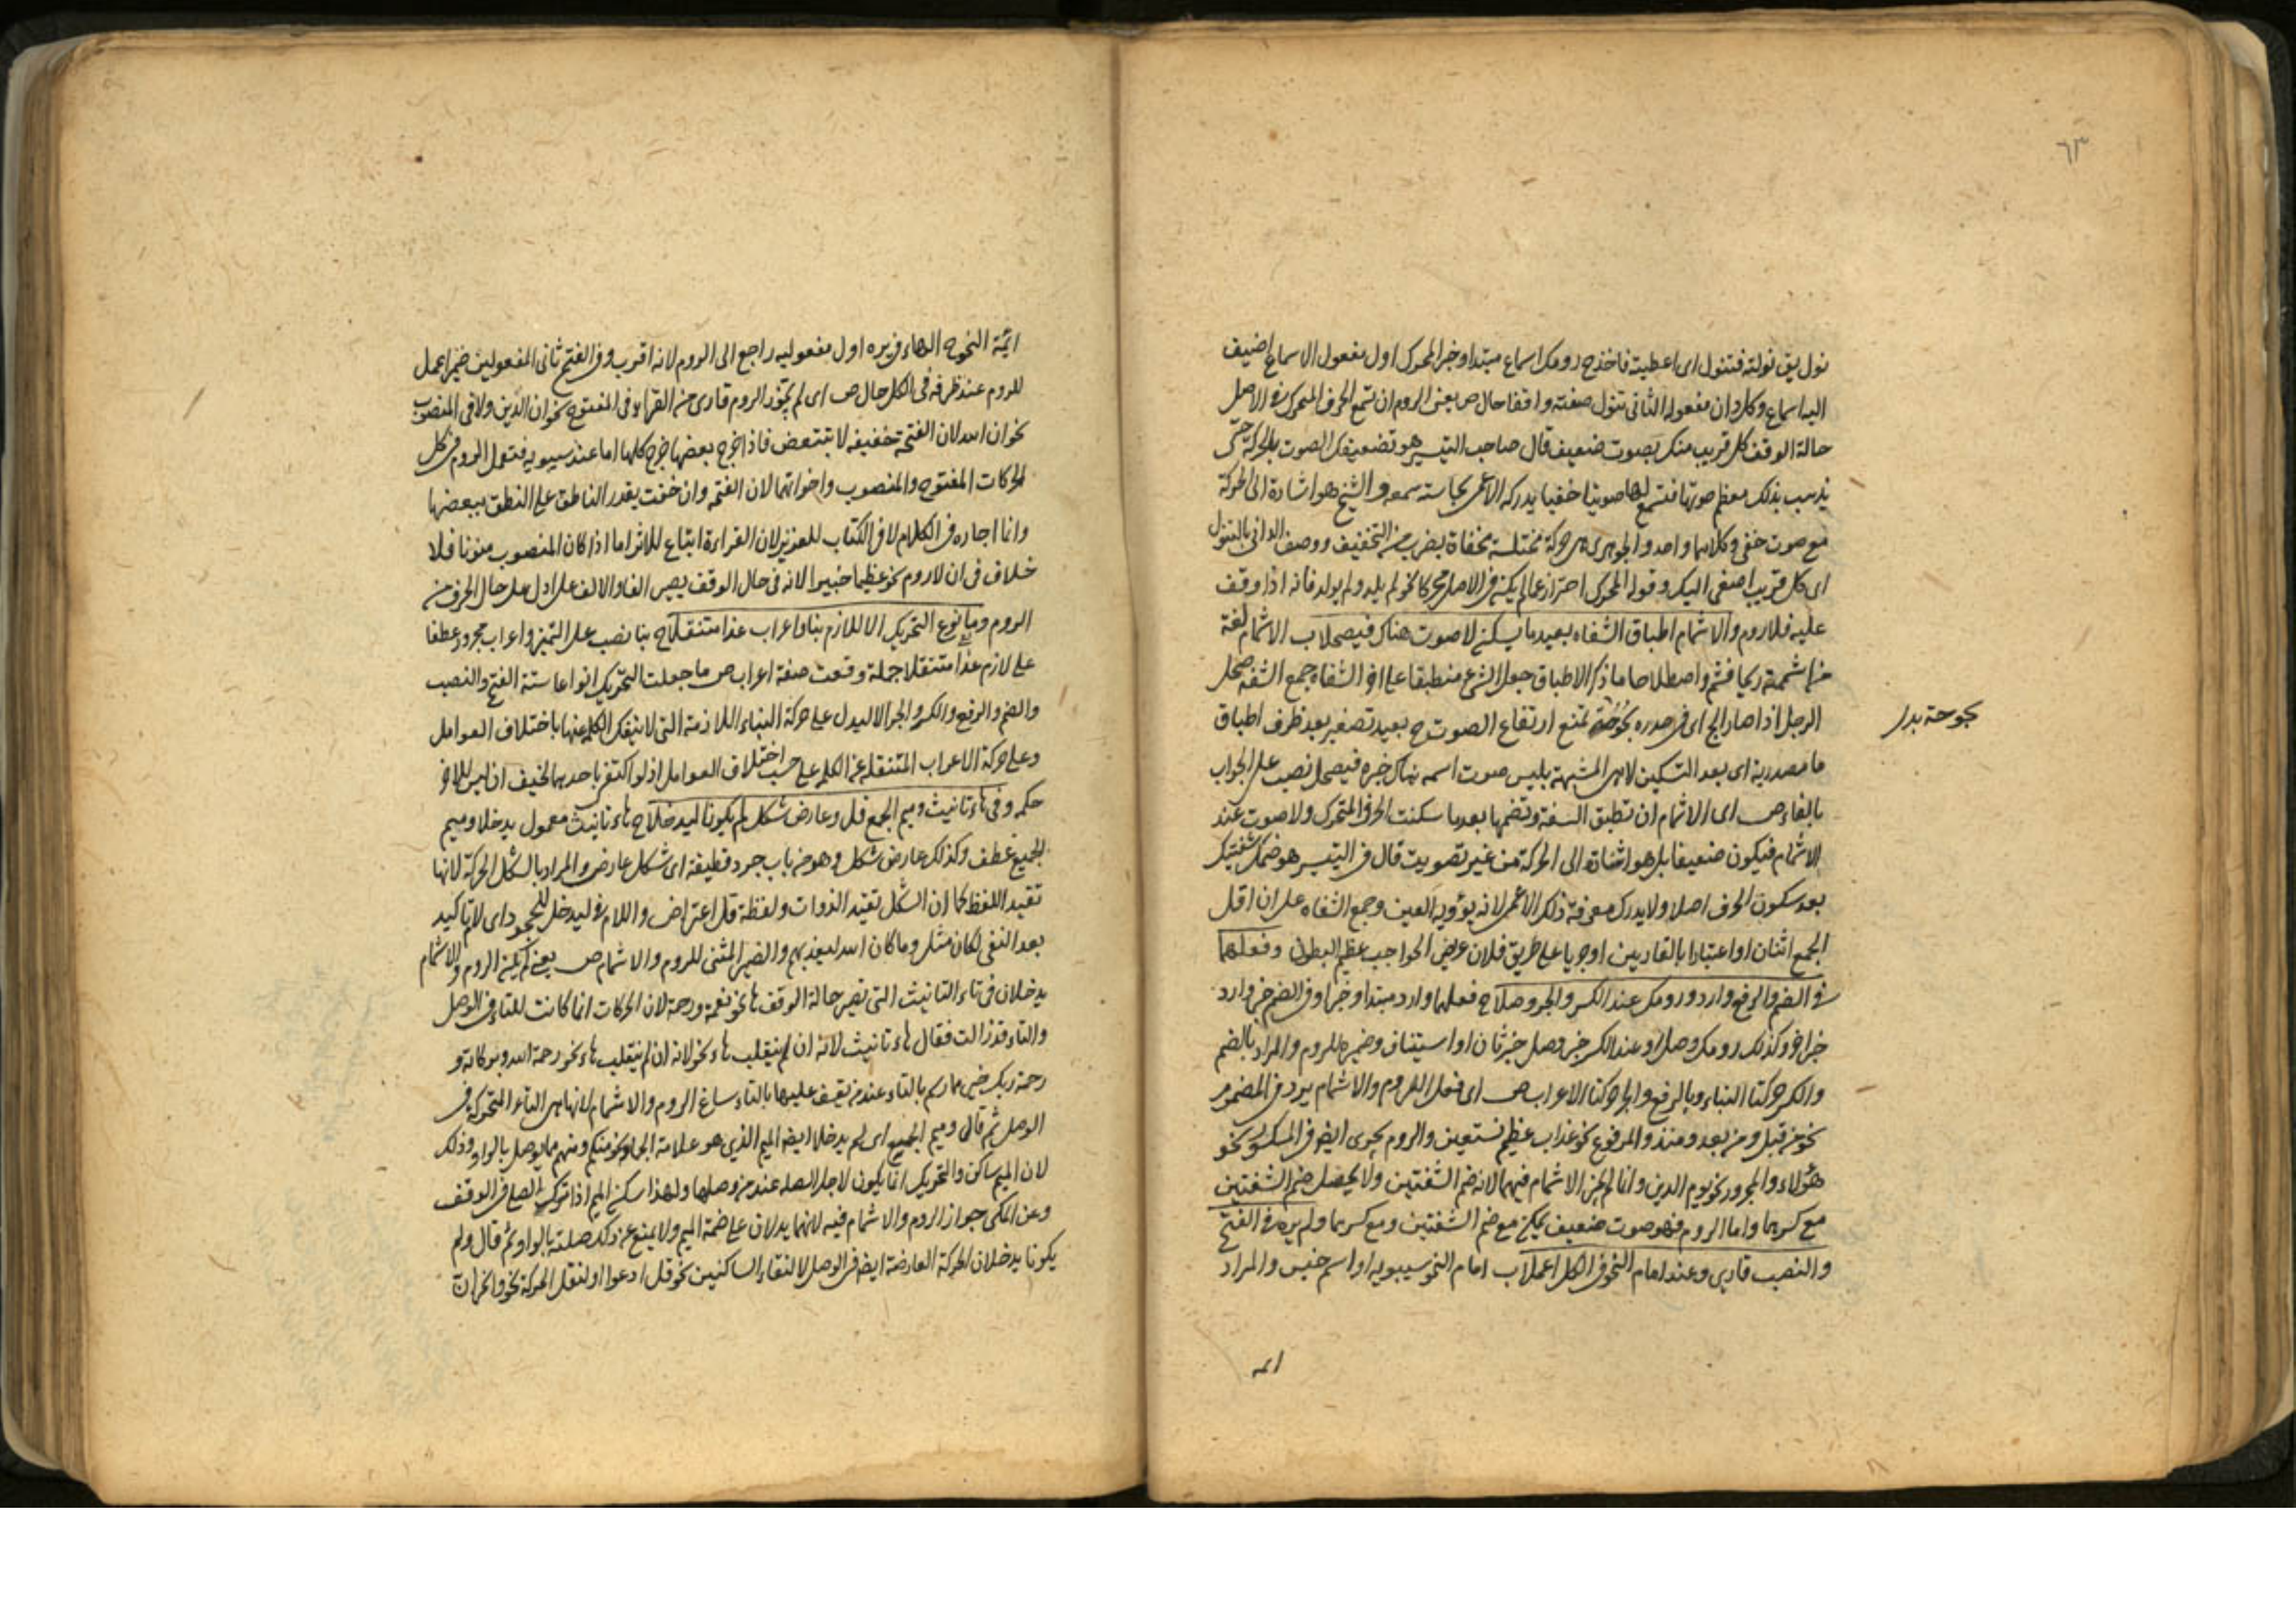 ٦٣
نول يق نولته فتنول اى اعطيته فاخذ ح رومك اسماع مبتدا وخبر المحرك اول مفعول الاسماع اضيف
اليه اسماع وكل دان مفعوله الثانى تنول صفته واقفا حال ص يعنى الروم ان تسمع الحرف المتحرك فى الاصل
حالة الوقف كل قريب منك بصوت ضعيف قال صاحب التيسير هو تضعيفك الصوت بالحركة حتى
يذهب بذلك معظم صوتها فتسمع لها صويتا خفيا يدركه الاعمى بحاسة سمعه و الشيخ هو اشارة الى الحركة
مع صوت خفى وكلاهما واحد و الجوهرى هى حركة مختلسة مخفاة بضرب من التخفيف ووصف الدانى بالتنول
اى كل قريب اصغى اليك وقوله المحرك احتراز عما لم يكن فى الاصل محركا نحو لم يلد ولم يولد فانه اذا وقف
عليه فلا روم والاشمام اطباق الشفاه بعيد ما يسكن لا صوت هناك فيصحلا ب الاشمام لغة
من اشممته ريحا فشم واصطلاحا ما ذكر الاطباق جعل الشىء منطبقا على اخر الشفاه جمع الشفه صحل
الرجل اذا صار ابح اى فى صدره بحوحة تمنع ارتفاع الصوت ح بعيد تصغير بعد ظرف اطباق
بحوحة بدل
ما مصدرية اى بعد التسكين لا هى المشبهة بليس صوت اسمه هناك خبره فيصحل نصب على الجواب
بالفاء ص اى الاشمام ان تطبق الشفة وتضمها بعد ما سكنت الحرف المتحرك ولا صوت عند
الاشمام فيكون ضعيفا بل هو اشارة الى الحركة من غير تصويت قال فى التيسير هو ضمك شفتيك
بعد سكون الحرف اصلا ولا يدرك معرفة ذلك الاعمى لانه يرؤية العين وجمع الشفاه على ان اقل
الجمع اثنان او اعتبارا بالقاريين اوجريا على طريق فلان عريض الحواجب عظيم البطون وفعلهما
فى الضم والرفع وارد ورومك عند الكسر والجر وصلا ح فعلهما وارد مبتدا وخبر او فى الضم خبر وارد
خبر اخر وكذلك رومك وصل او عند الكسر خبر وصل خبر ثان او استيناف وضميره للروم والمراد بالضم
والكسر حركتا البناء وبالرفع والجر حركتا الاعراب ص اى فعل الروم والاشمام يرد فى المضموم
نحو من قبل ومن بعد ومنذ والمرفوع نحو عذاب عظيم نستعين والروم يجرى ايضا فى المكسور نحو
هؤلاء والمجرور نحو يوم الدين وانما لم يجز الاشمام فيهما لانه ضم الشفتين ولا يحصل ضم الشفتين
مع كسرهما واما الروم فهو صوت ضعيف يمكن مع ضم الشفتين ومع كسرهما ولم يره فى الفتح
والنصب قارى وعند امام النحو فى الكل اعملا ب امام النحو سيبويه او اسم جنس والمراد
ائمة
ائمة النحو ح الهاء فى يره اول مفعوليه راجع الى الروم لانه اقرب وفى الفتح ثانى المفعولين ضمير اعمل
للروم عند ظرفه فى الكل حال ص اى لم يجوز الروم قارى من القراء فى المفتوح نحو ان الذين ولا فى المنصوب
نحو ان الله لان الفتحة خفيفة لا تتبعض فاذا خرج بعضها خرج كلها اما عند سيبويه فتعمل الروم فى كل
الحركات المفتوح والمنصوب واخواتهما لان الفتحه وان خفت يقدر الناطق على النطق ببعضها
وانما اجازه فى الكلام لا فى الكتاب العزيز لان القراءة اتباع للاثر اما اذا كان المنصوب منونا فلا
خلاف فى ان لا روم نحو عظيما خبيرا لانه فى حال الوقف يصير الفا والالف على ادل على حال الحرف من
الروم وما نوع التحريك الا للازم بناء واعراب غدا متنقلا ح بنا نصب على التميز واعراب مجرور عطفا
على لازم غدا متنقلا جملة وقعت صفة اعراب ص ما جعلت التحريك انواعا ستة الفتح والنصب
والضم والرفع والكسر والجر الا ليدل على حركة البناء اللازمة التى لا ينفك الكلمه عنها باختلاف العوامل
وعلى حركة الاعراب المتنقلة عن الكلمه على حسب اختلاف العوامل اذ لو اكتفى باحدهما لخيف ان ليس للاخر
حكمه وفى هاء تانيث وميم الجمع قل وعارض شكل لم يكونا ليدخلا ح هاء تانيث معمول يدخلا وميم
الجميع عطف وكذلك عارض شكل وهو من باب جرد قطيفة اى شكل عارض والمراد بالشكل الحركة لانها
تقيد اللفظ كما ان الشكل تقيد الدوات ولفظة قل اعتراض واللام فى ليدخلا للجحود اى لا تاكيد
بعد النفى لكان مثل وما كان الله ليعذبهم والضمير المثنى للروم والاشمام ص يعنى لم يكن الروم والاشمام
يدخلان فى تاء التانيث التى تصير حالة الوقف هاء نحو نعمة ورحمة لان الحركات انما كانت للتاء فى الوصل
والتاء قد زالت فقال هاء تانيث لانه ان لم ينقلب هاء نحو لانه ان لم ينقلب هاء نحو رحمة الله وبركاته و
رحمة ربك خير مما رسم بالتاء عند من يقف عليها بالتاء ساغ الروم والاشمام لانها هى التاء المتحركة فى
الوصل ثم قال وميم الجميع اى لم يدخلا ايضا الميم الذى هو علامة الجمع نحو منكم ومنهم مما يوصل بالواو وذلك
لان الميم ساكن والتحريك انما يكون لاجل الصله عند من وصلها ولهذا سكن الميم اذا ترك الصلة فى الوقف
وعن المكى جواز الروم والاشمام فيه لانهما يدلان على ضمة الميم ولا يمنع عن ذلك صلته بالواو ثم قال ولم
يكونا يدخلان الحركة العارضة ايضا فى الوصل لالتقاء الساكنين نحو قل ادعوا او لنقل الحركة نحو وانحر ان